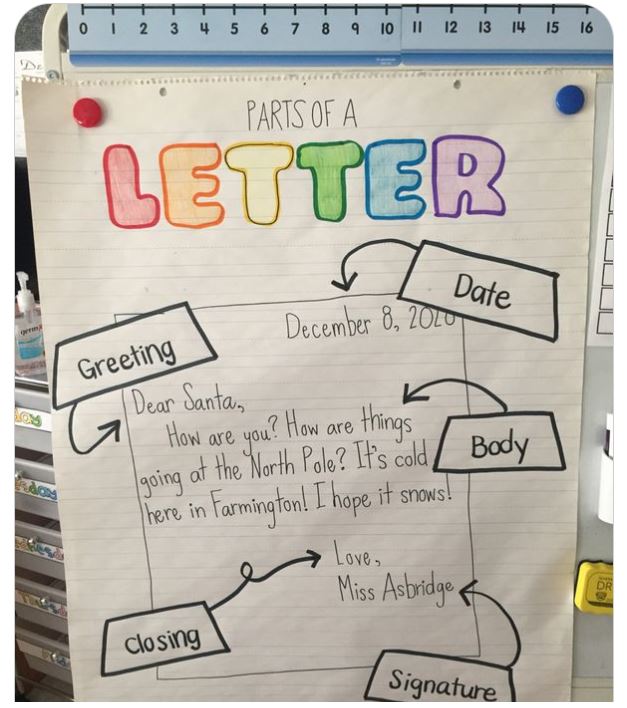 0 1 2 3 4 5 6 7 8 9 10 11 12 13 14 15 16
PARTS OF A
LETTER
Date
December 8, 2020
Greeting
Dear Santa,
How are you? How are things
going at the North Pole? It's cold
here in Farmington! I hope it snows!
Body
Love,
Miss Asbridge
Closing
Signature